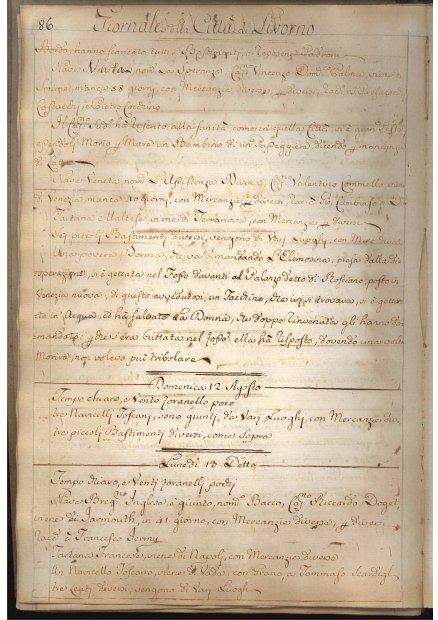 86 Giornale della Città di Livorno
Bordo, hanno scaricato tutti i Bastimenti, a
Nave Veneta nom.ta La Speranza Cap.no Vincenzo Dom.co viene di
Smirne, manca 58 giorni, con Mercanzie diverse, p diversi, Racc.
Il Cap.no Sud.o ha riferito alla Sanità come in quella Città vi è gran Peste,
e
di
Nave Veneta nom.ta L'Assistenza Divina, Cap.no Valentino viene
di Venezia, manca 20 giorni, con Mercanzie p diversi,
Tartana Maltese viene di Terranova, con Mercanzie p diversi
Sei piccoli Bastimenti diversi, vengono di Varj Luoghi, con Merc. diver.
Una povera Donna, che andava dimandando L'Elemosina, presa dalla di-
sperazione, si è gettata nel Fosso davanti al Palazzo detto di posto in
Venezia nuova, di questo avvedutosi, un Facchino, che ivi si trovava, si è gettato
in Acqua, ed ha salvato La Donna, che doppo rinvenuta gli hanno do-
mandato, p che s'era buttata nel fosso, ella ha risposto, dovendo una volta
Morire, non volevo più tribolare
Domenica 12 Agosto
Tempo chiaro, e Vento foranello poco
tre Navicelli Toscani, sono giunti, da Varj Luoghi, con Mercanzie di.
tre piccoli Bastimenti diversi, come sopra
Lunedì 13 Detto
Tempo chiaro, e Venti foranelli pochi
Nave Breg.no Inglese è giunto, nom.to Bacco, Cap.no Riccardo Doget,
viene di Jarmouth, in 41 giorno, con Mercanzie diverse, p diversi
Racc. a Francesco Jermy
Tartana Francese, viene di Napoli, con Mercanzie diverse
Un Navicello Toscano, viene di Vada, con Grano, a Tommaso
tre Legni diversi, vengono di Varj Luoghi